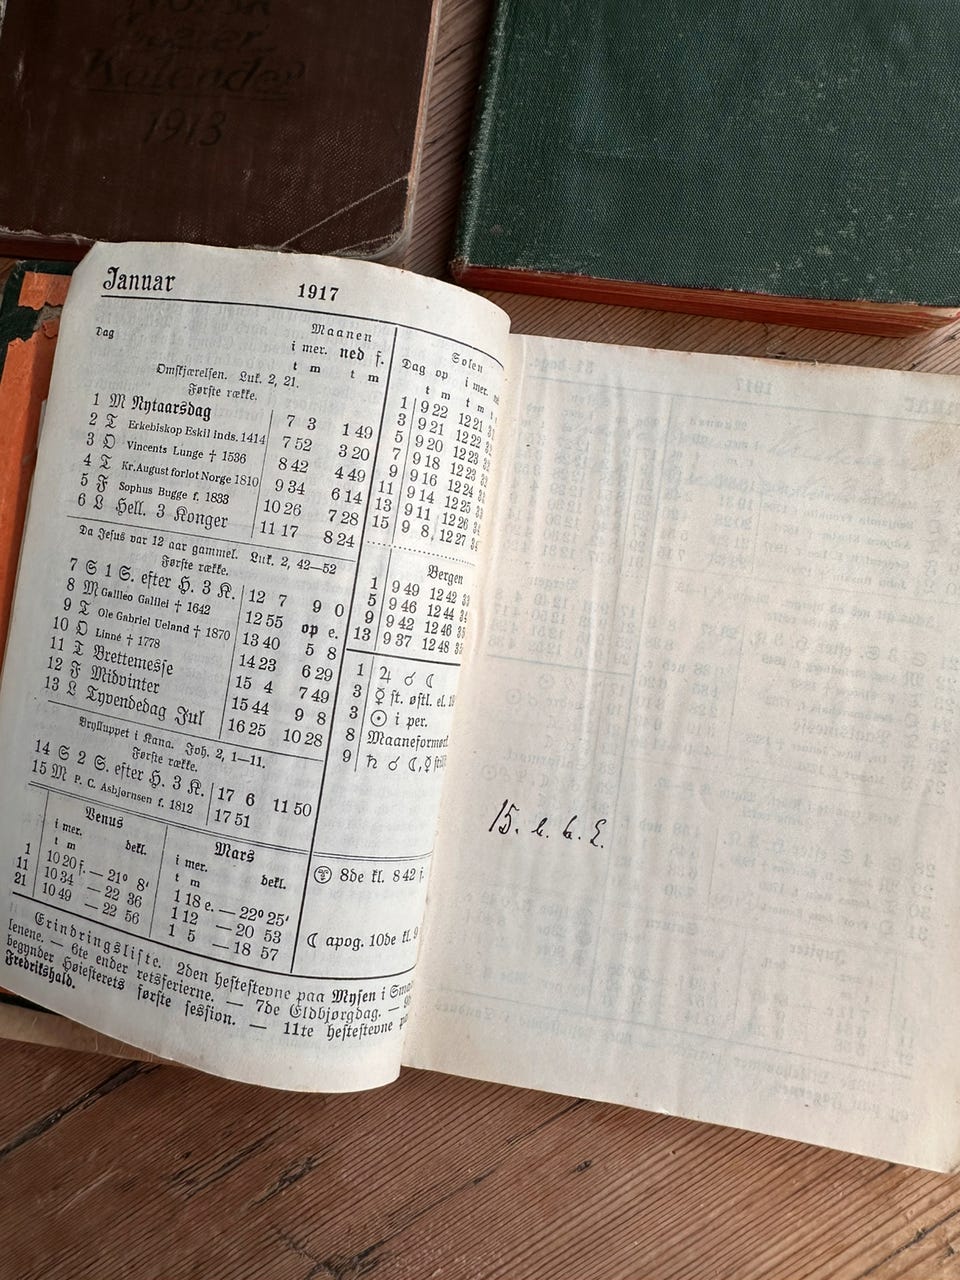 Norsk
Kalender
1913
Januar 1917
Dag
Maanen
i mer. ned f.
t m t m
Omskjærelsen. Luk. 2, 21.
Første række.
1 M Nytaarsdag 7 3 1 49
2 T Erkebiskop Eskil inds. 1414 7 52 3 20
3 O Vincents Lunge † 1536 8 42 4 49
4 T Kr. August forlot Norge 1810 9 34 6 14
5 F Sophus Bugge f. 1833 10 26 7 28
6 L Hell. 3 Konger 11 17 8 24
Da Jesus var 12 aar gammel. Luk. 2, 42—52
Første række.
7 S 1 S. efter H. 3 K. 12 7 9 0
8 M Galileo Galilei † 1642 12 55 op e.
9 T Ole Gabriel Ueland † 1870 13 40 5 8
10 O Linné † 1778 14 23 6 29
11 T Brettemesse 15 4 7 49
12 F Midvinter 15 44 9 8
13 L Tyvendedag Jul 16 25 10 28
Bryllupet i Kana. Joh. 2, 1—11.
Første række.
14 S 2 S. efter H. 3 K. 17 6 11 50
15 M P. C. Asbjørnsen f. 1812 17 51
Solen
Dag op i mer.
t m t m t
1 9 22 12 21
3 9 21 12 22
5 9 20 12 23
7 9 18 12 23
9 9 16 12 24
11 9 14 12 25
13 9 11 12 26
15 9 8 12 27
Bergen
1 9 49 12 42
5 9 46 12 44
9 9 42 12 46
13 9 37 12 48
1 ♃ ☌ ☾
3 ☿ st. østl. el.
3 ☉ i per.
8 Maaneformørk
9 ♄ ☌ ☾, ☿
8de kl. 8 42 f.
☾ apog. 10de kl. 9
Venus
i mer. dekl.
t m
1 10 20 f. — 21° 8'
11 10 34 — 22 36
21 10 49 — 22 56
Mars
i mer. dekl.
t m
1 18 e. — 22° 25'
1 12 — 20 53
1 5 — 18 57
Erindringsliste. 2den hestestevne paa Mysen i Smaa
lenene. — 6te ender retsferierne. — 7de Eldbjørgdag. —
begynder Høiesterets første session. — 11te hestestevne
Fredrikshald.
15.